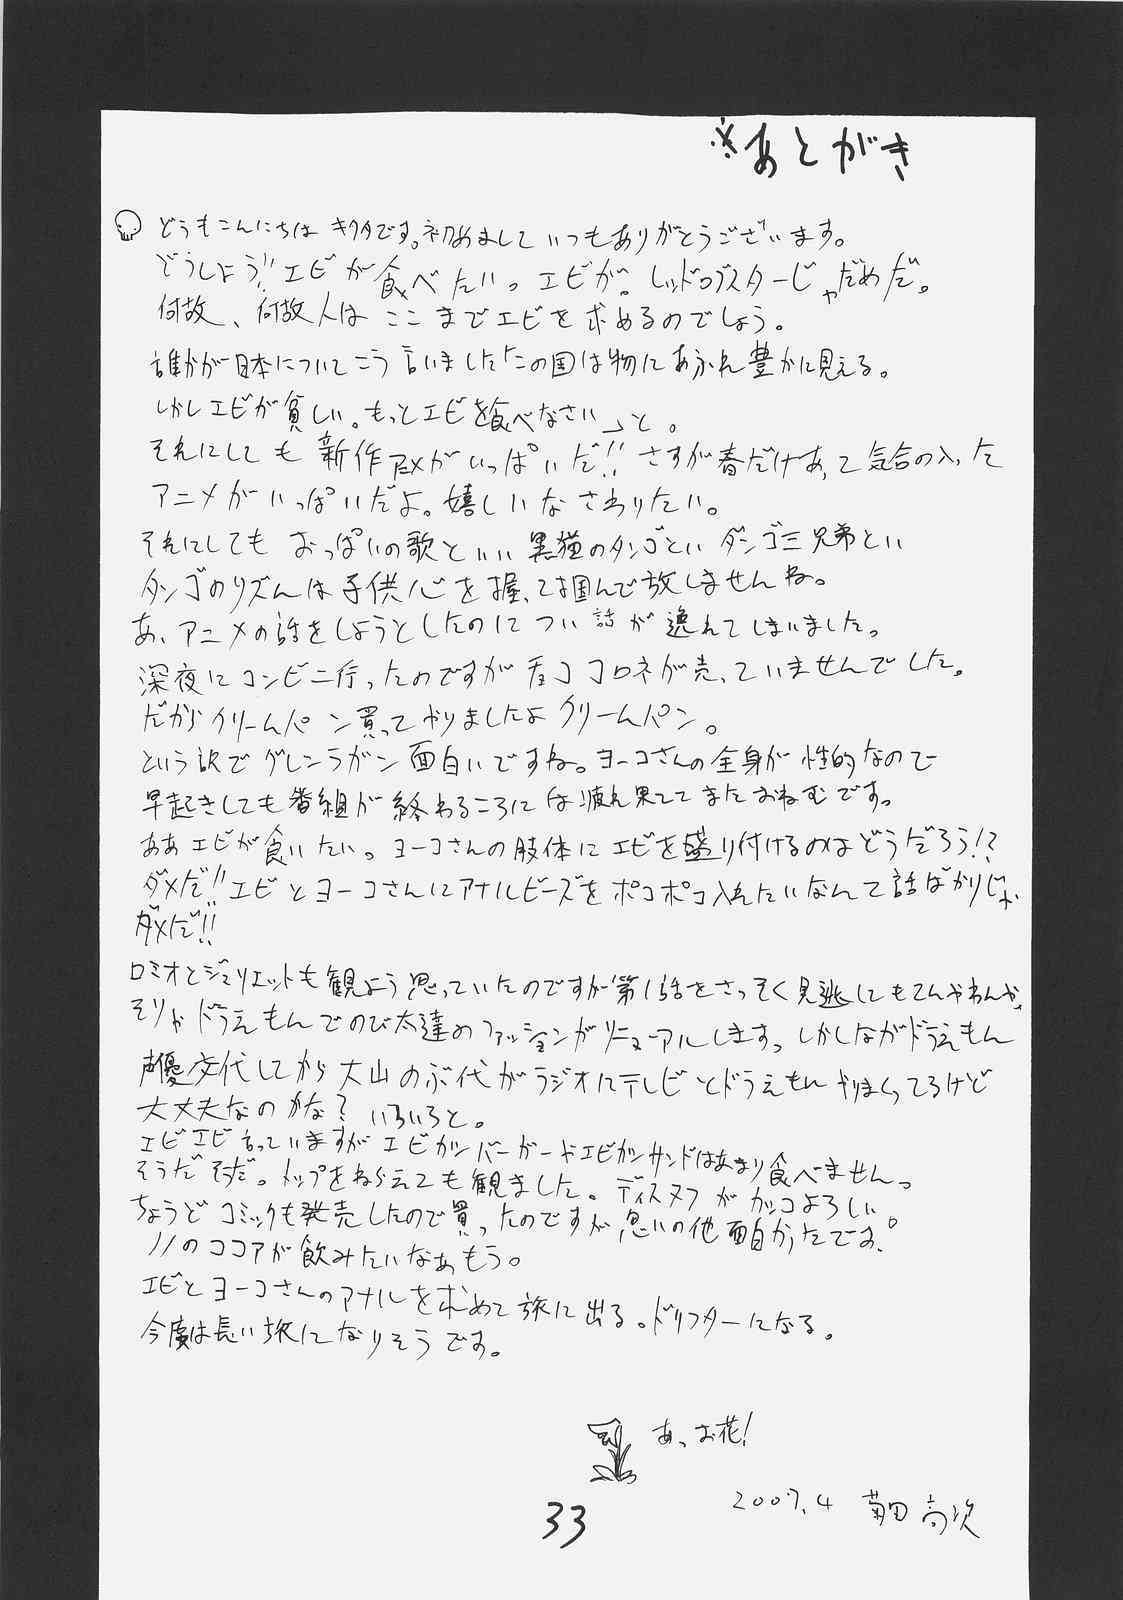 ※あとがき
どうもこんにちは キクタです。初めまして いつもありがとうございます。
どうしよう!! エビが食べたいっ エビが。レッドロブスターじゃだめだ。
何故、何故人は ここまでエビを求めるのでしょう。
誰かが日本についてこう言いました「この国は物にあふれ豊かに見える。
しかしエビが貧しい。もっとエビを食べなさい」と。
それにしても 新作アニメがいっぱいだ!! さすが春だけあって気合の入った
アニメがいっぱいだよ。嬉しいな さわりたい。
それにしても おっぱいの歌といい 黒猫のタンゴといい ダンゴ三兄弟とい
タンゴのリズムは子供心を握っては掴んで放しませんね。
あ、アニメの話をしようとしたのについ話が逸れてしまいました。
深夜にコンビニ行ったのですが チョココロネが売っていませんでした。
だからクリームパン買ってやりましたよクリームパン。
という訳で グレンラガン 面白いですね。ヨーコさんの全身が性的なので
早起きしても番組が終わるころには疲れ果ててまたおねむです。
ああエビが食いたい。ヨーコさんの肢体にエビを盛り付けるのはどうだろう!?
ダメだ!! エビとヨーコさんにアナルビーズをポコポコ入れたいなんて話ばかりじゃ
ダメだ!!
ロミオとジュリエットも観よう思っていたのですが第1話をさっそく見逃してもてんやわんや、
そりゃドラえもんでのび太達のファッションがリニューアルします。しかしながらドラえもん
声優交代してから大山のぶ代がラジオにテレビとドラえもんやりまくってるけど
大丈夫なのかな? いろいろと。
エビエビ言っていますが エビカツバーガーやエビカツサンドはあまり食べません。
そうだそうだ。トップをねらえても観ました。ディスヌフがカッコよろしい
ちょうどコミックも発売したので買ったのですが思いの他面白かったです。
ノノのココアが飲みたいなぁもう。
エビとヨーコさんのアナルを求めて旅に出る。ドリフターになる。
今度は長い旅になりそうです。
あっ、お花!
2007.4 菊田高次
33